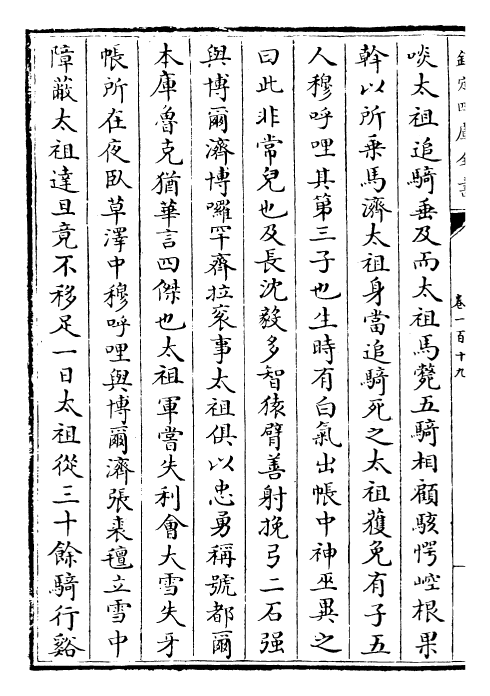 欽定四庫全書
卷一百十九
啖太祖追騎垂及而太祖馬斃五騎相顧駭愕崆根果
幹以所乗馬濟太祖身當追騎死之太祖獲免有子五
人穆呼哩其第三子也生時有白氣出帳中神巫異之
曰此非常兒也及長沈毅多智猿臂善射挽弓二石强
與博爾濟博囉罕齊拉衮事太祖俱以忠勇稱號都爾
本庫魯克猶華言四傑也太祖軍嘗失利會大雪失牙
帳所在夜臥草澤中穆呼哩與博爾濟張裘氊立雪中
障蔽太祖達旦竟不移足一日太祖從三十餘騎行谿